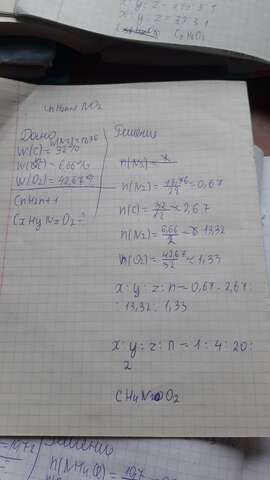 x : y : z = 3 9 : 3 : 1
CnH2n+1 NO2
Дано
Решение
W(N2) = 18,76
W(C) = 32%
W(H) = 6,66%
W(O2) = 42,67%
CnH2n+1
CxHyNzO2 - ?
n(N2) = x
n(N2) = 18,76/28 = 0,67
n(C) = 32/12 = 2,67
n(N2) = 6,66/2 = 13,32
n(O2) = 42,67/32 = 1,33
x : y : z : n = 0,67 : 2,67 :
: 13,32 : 1,33
x : y : z : n = 1 : 4 : 20 :
2
CH4N O2
Решение
n(NH4Cl) = 10,7